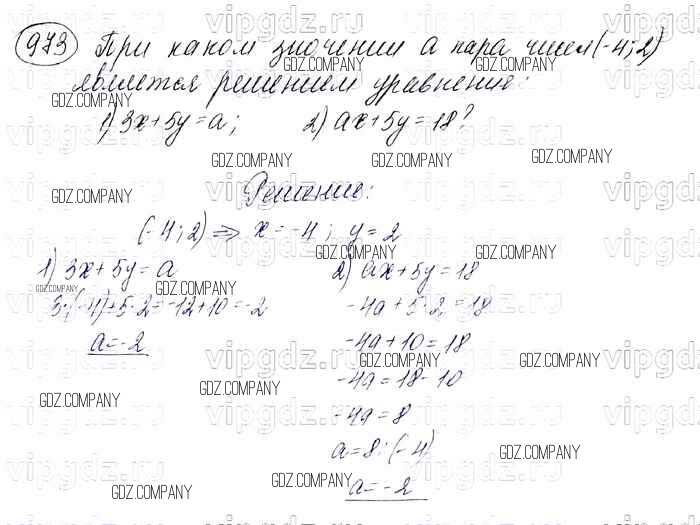 973 При каком значении а пара чисел (-4; 2)
является решением уравнения:
1) 3x + 5y = a; 2) ax + 5y = 18?
Решение:
(-4; 2) => x = -4; y = 2
1) 3x + 5y = a
3·(-4) + 5·2 = -12 + 10 = -2
a = -2
2) ax + 5y = 18
-4a + 5·2 = 18
-4a + 10 = 18
-4a = 18 - 10
-4a = 8
a = 8 : (-4)
a = -2
vipgdz.ru
GDZ.COMPANY